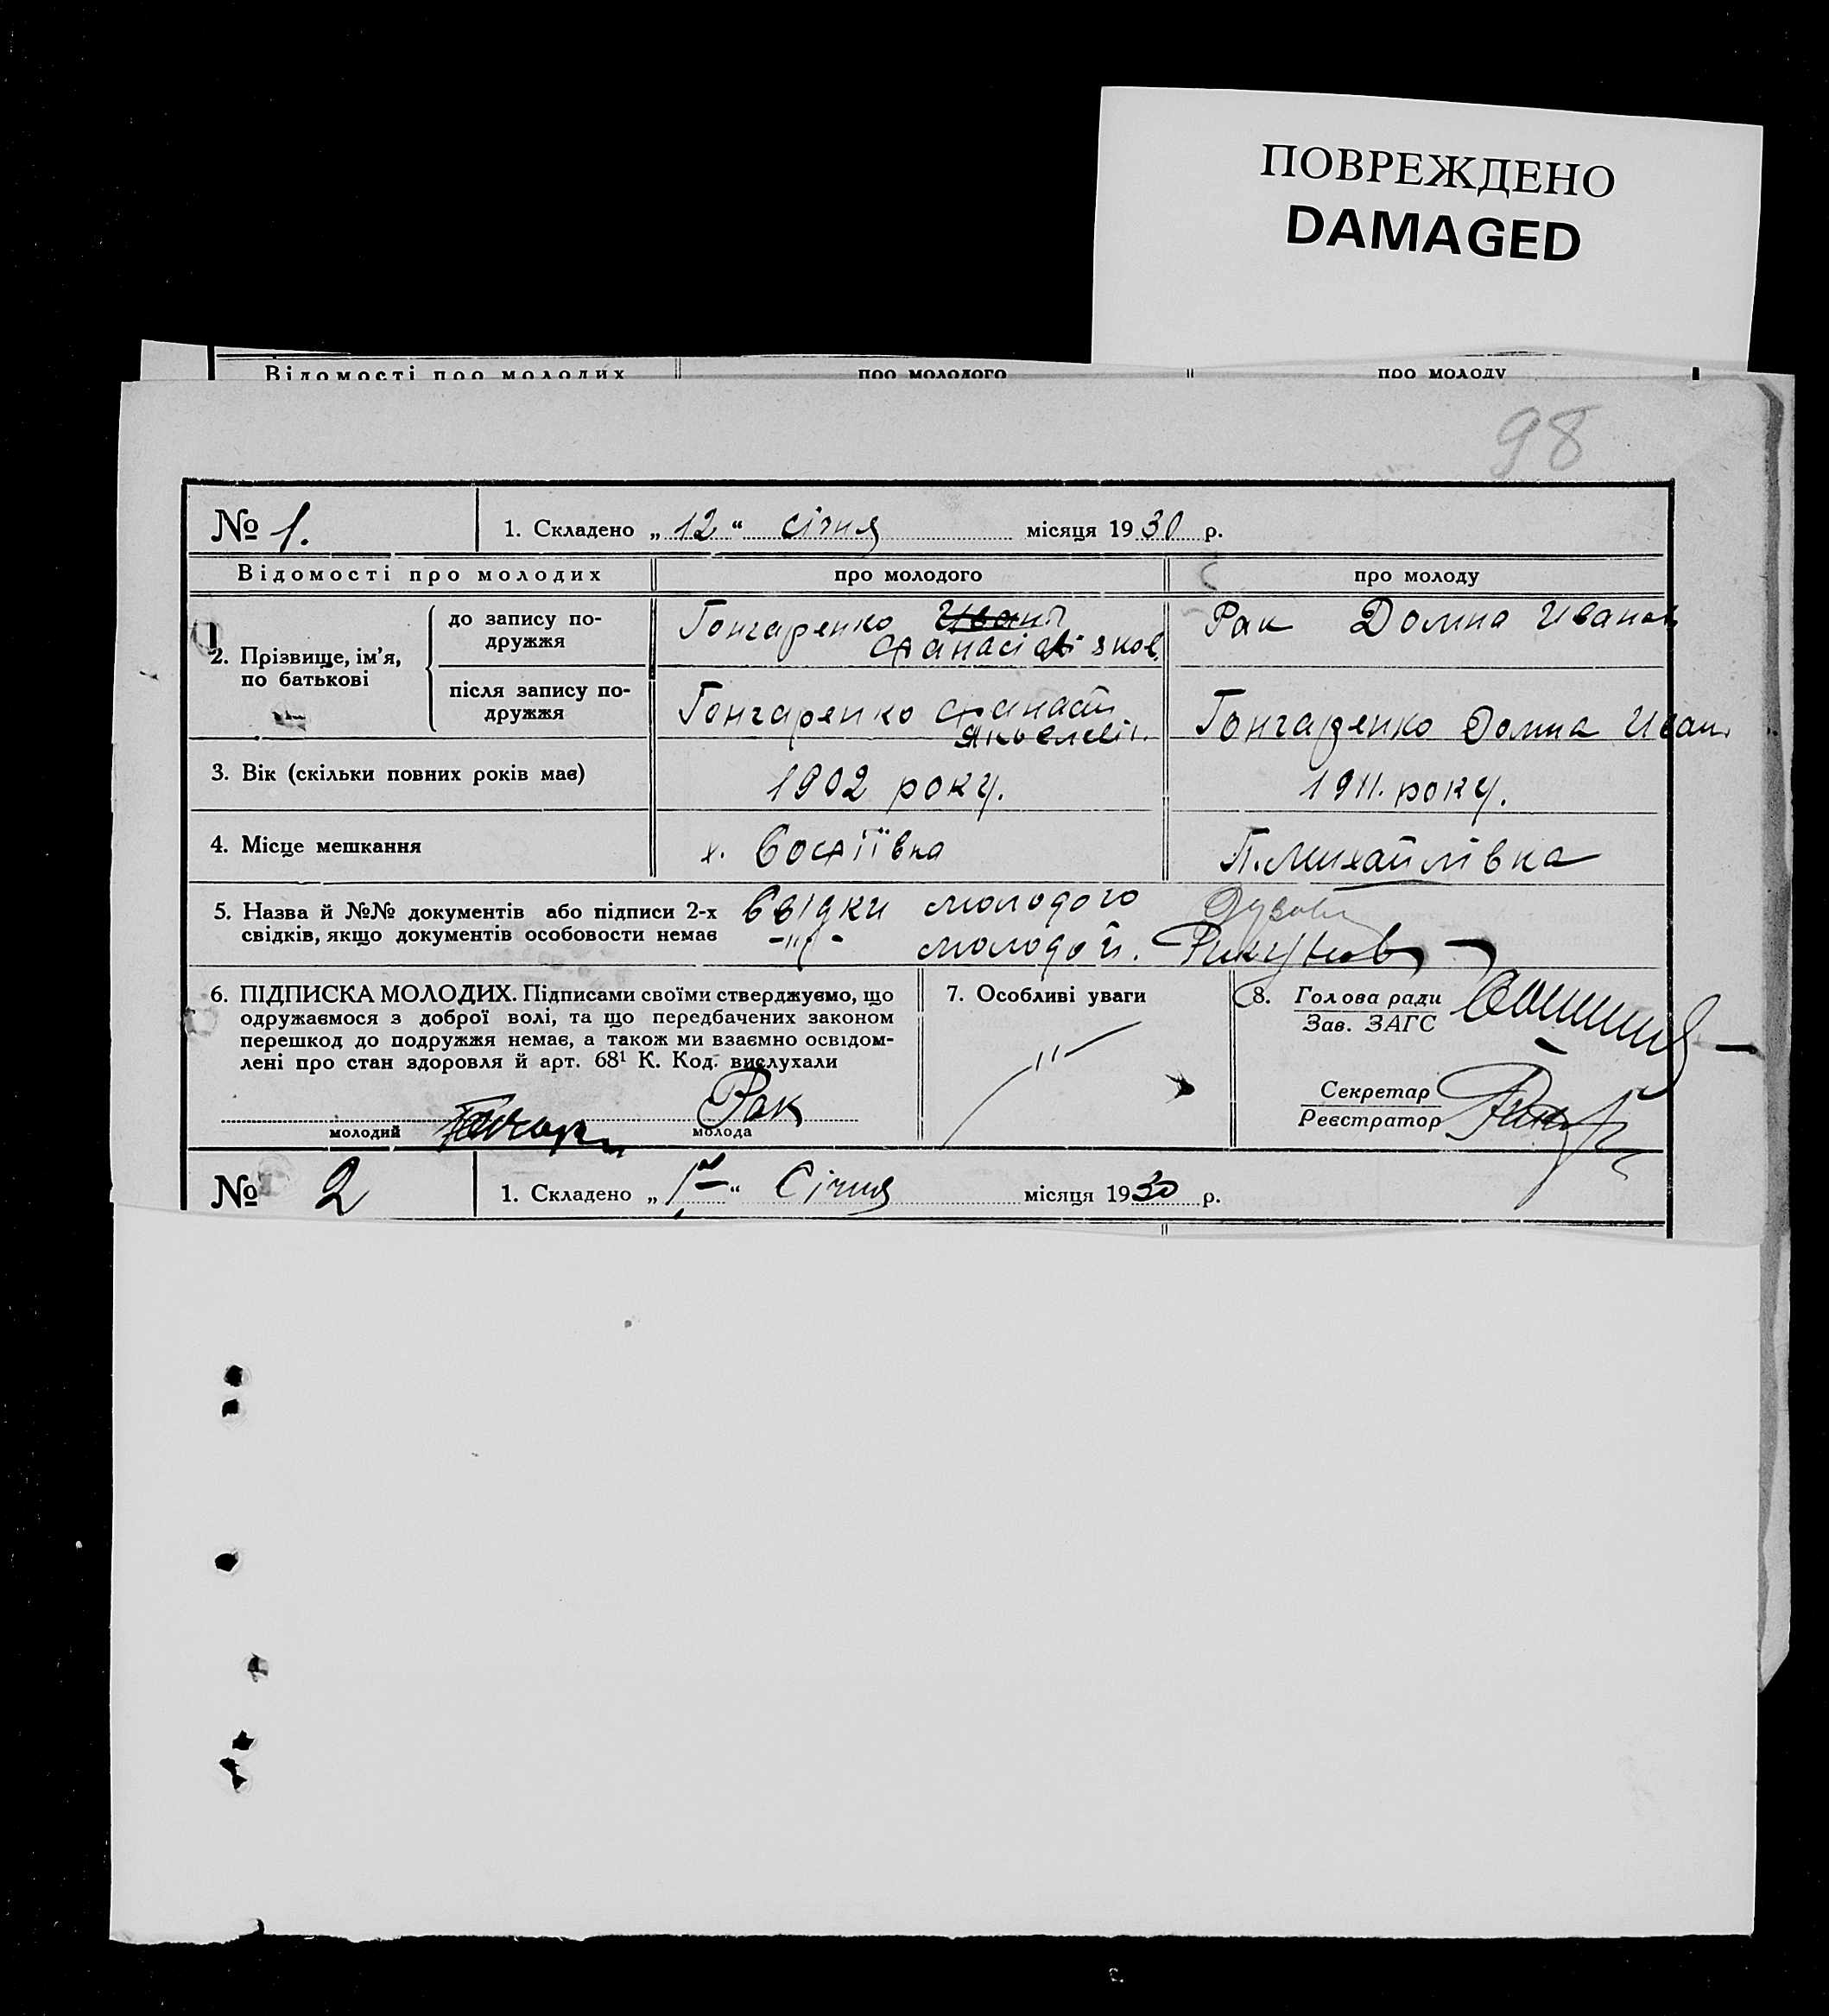 ПОВРЕЖДЕНО
DAMAGED
Відомості про молодих про молодого про молоду
98
№ 1. 1. Складено „12“ січня місяця 1930 р.
Відомості про молодих про молодого про молоду
2. Прізвище, ім’я, по батькові
до запису подружжя
Гончаренко Иван
Афанасій Яков.
Рак Домна Иванов
після запису подружжя
Гончаренко Афанасій
Гончаренко Домна Иван.
3. Вік (скільки повних років має) 1902 року. 1911. року.
4. Місце мешкання х. Софіївка П. Михайлівка
5. Назва й №№ документів або підписи 2-х Свідки молодого
свідків, якщо документів особовости немає -"- молодой.
6. ПІДПИСКА МОЛОДИХ. Підписами своїми стверджуємо, що
одружаємося з доброї волі, та що передбачених законом
перешкод до подружжя немає, а також ми взаємно освідом-
лені про стан здоровля й арт. 68¹ К. Код. вислухали
Гончар Рак
молодий молода
7. Особливі уваги
-"-
8. Голова ради
Зав. ЗАГС
Секретар
Реєстратор
№ 2 1. Складено „ “ Січня місяця 1930 р.